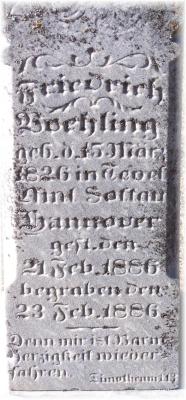 Friedrich
Voehling
geb. d. 15 Marz
1826 in Tevel
Amt Soltau
Hannover
gest. den
21 Feb. 1886
begraben den
23 Feb. 1886
Denn mir ist Barm
herzigkeit wieder
fahren. Timotheum 1 13